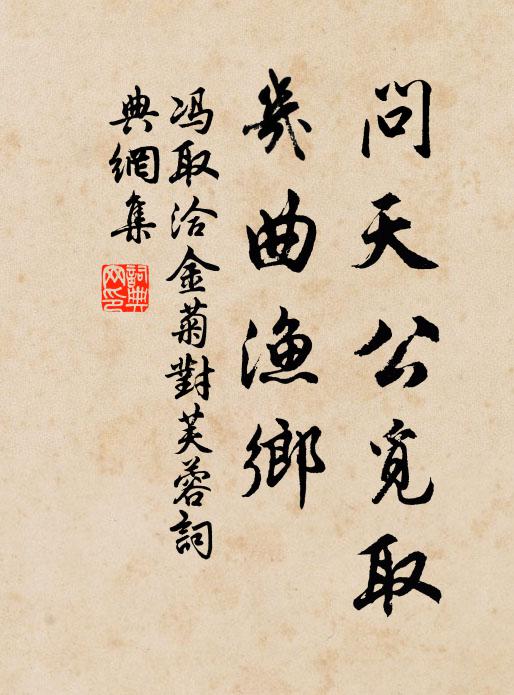 问天公觅取
几曲渔鄉
冯取洽金菊對芙蓉詞
典網集
詞典网印